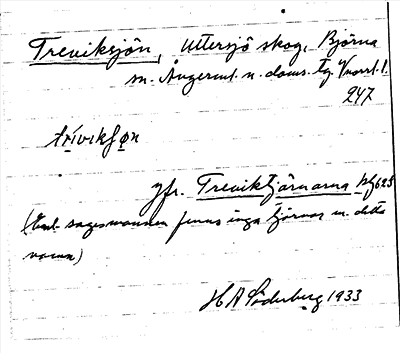 Treviksjön, Uttersjö skog, Björna
sn. Ångerml. n. doms. tg. Vnorrl. l.
247
trivikʃøn
jfr. Treviktjärnarna bl 623
(Enl. sagesmannen finns inga tjärnar m. detta
namn)
H A Söderberg 1933